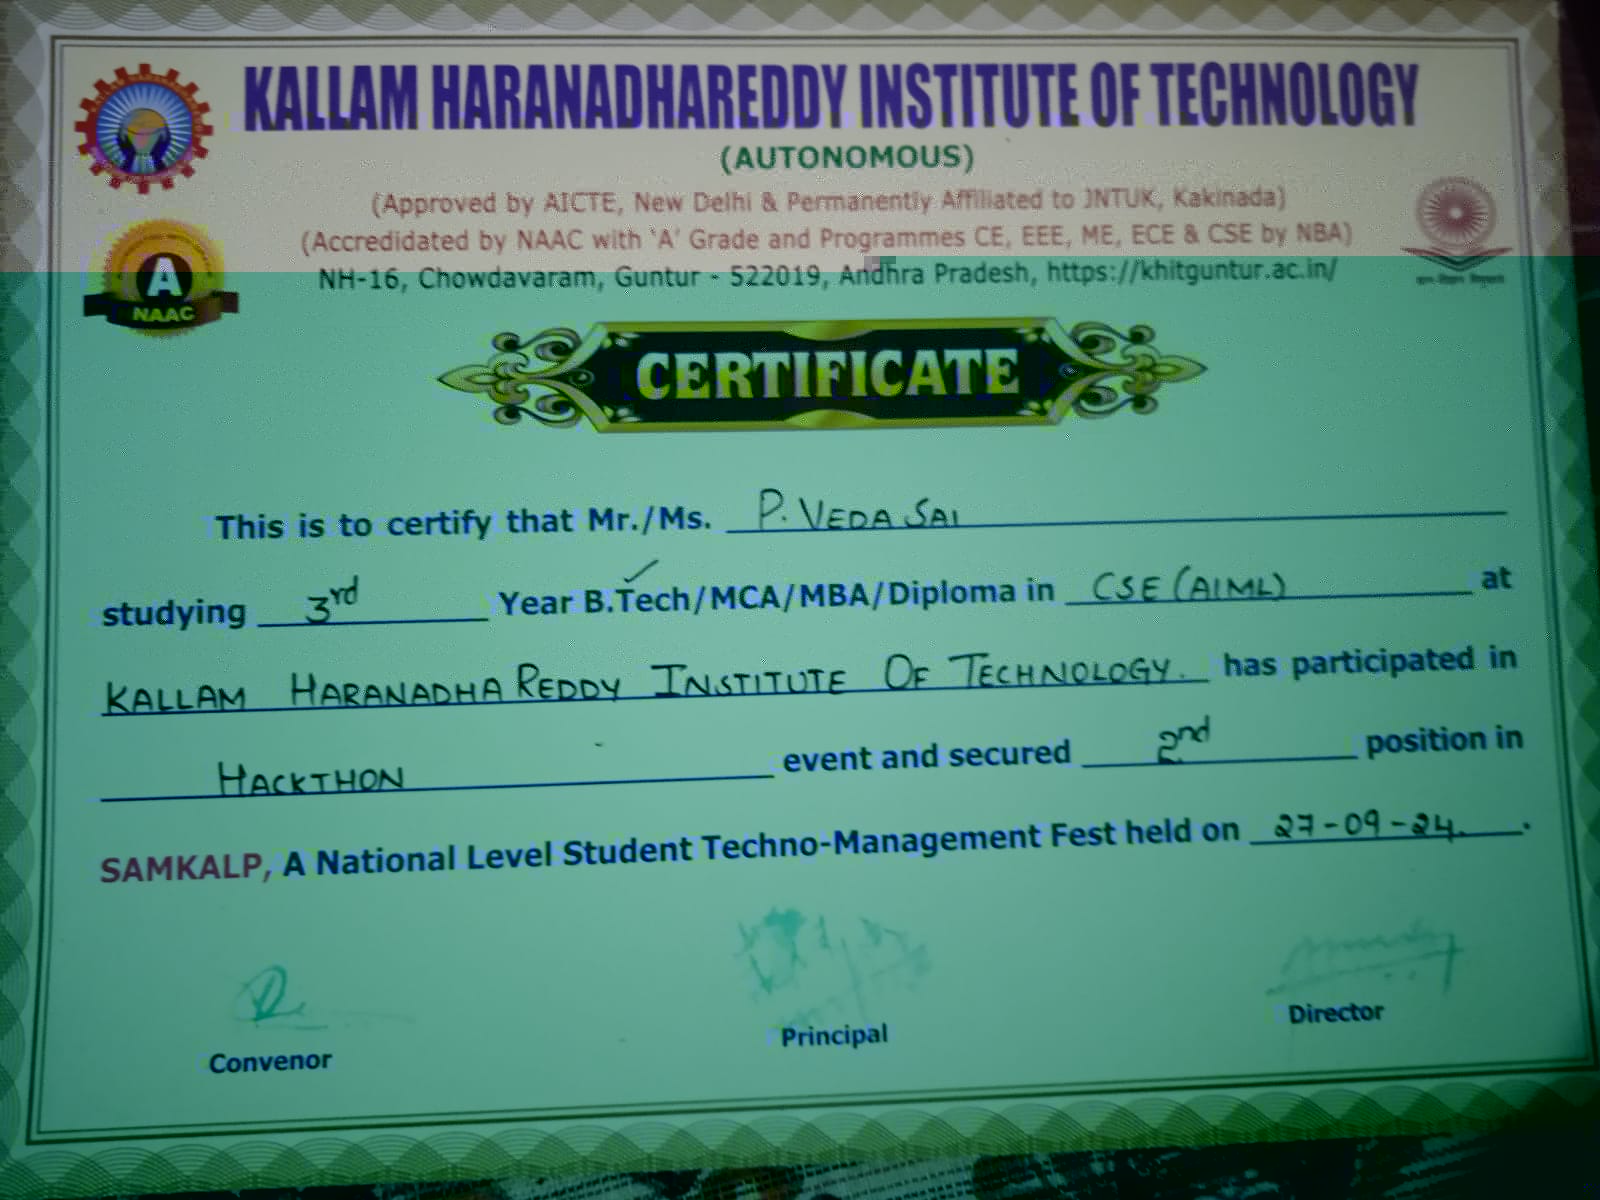 KALLAM HARANADHAREDDY INSTITUTE OF TECHNOLOGY
(AUTONOMOUS)
(Approved by AICTE, New Delhi & Permanently Affiliated to JNTUK, Kakinada)
(Accredidated by NAAC with 'A' Grade and Programmes CE, EEE, ME, ECE & CSE by NBA)
NH-16, Chowdavaram, Guntur - 522019, Andhra Pradesh, https://khitguntur.ac.in/
A
NAAC
CERTIFICATE
This is to certify that Mr./Ms. P. VEDA SAI
studying 3rd Year B.Tech/MCA/MBA/Diploma in CSE (AIML) at
KALLAM HARANADHA REDDY INSTITUTE OF TECHNOLOGY. has participated in
HACKTHON event and secured 2nd position in
SAMKALP, A National Level Student Techno-Management Fest held on 27-09-24.
Convenor
Principal
Director